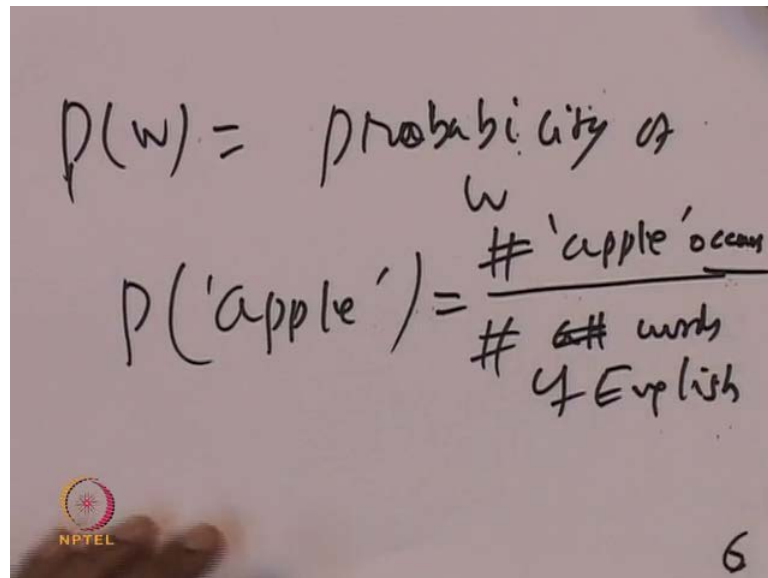 P(W) = probability of
W
P('apple') = # 'apple' occurs
# words
of English
NPTEL
6